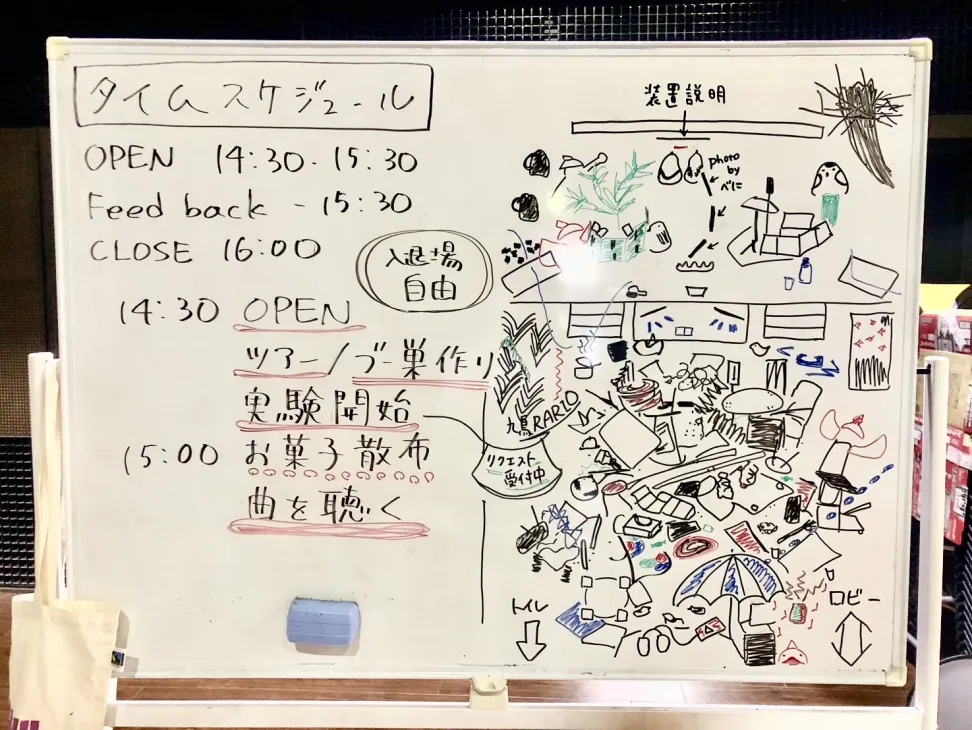 タイムスケジュール
OPEN 14:30-15:30
Feed back -15:30
CLOSE 16:00
入退場
自由
14:30 OPEN
ツアー/ブー巣作り
実験開始
15:00 お菓子散布
曲を聴く
装置説明
photo
by
べに
RARIO
リクエスト
受付中
トイレ
ロビー